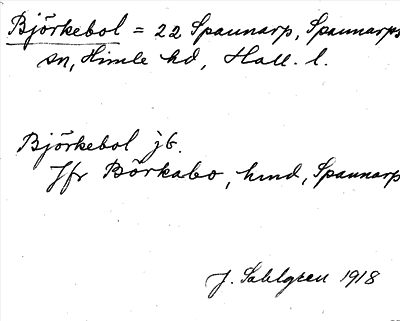 Björkebol = 22 Spannarp, Spannarps
sn, Himle hd, Hall. l.
Björkebol jb.
Jfr Börkabo, hmd, Spannarp
J. Sahlgren 1918